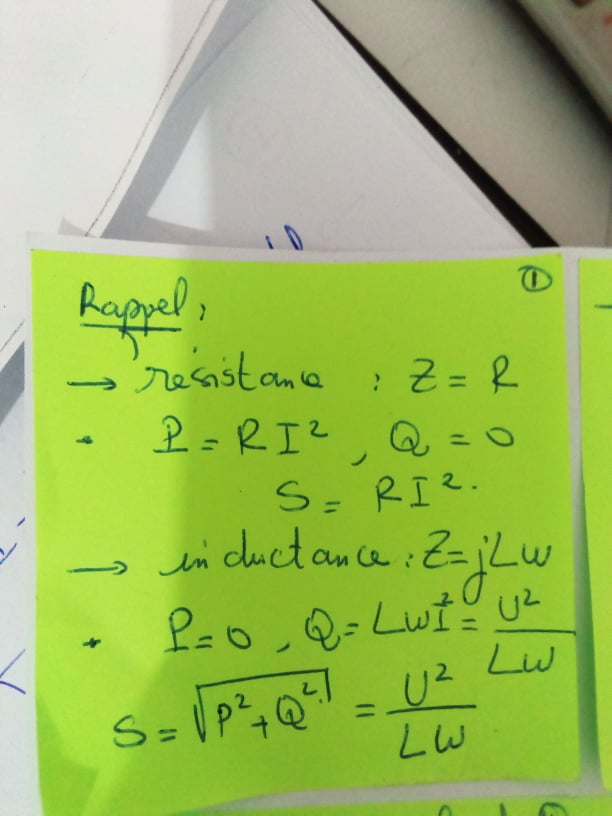 ①
Rappel :
→ résistance : Z = R
• P = RI², Q = 0
S = RI².
→ inductance : Z = jLω
• P = 0, Q = LωI² = U²/Lω
S = √(P² + Q²) = U²/Lω